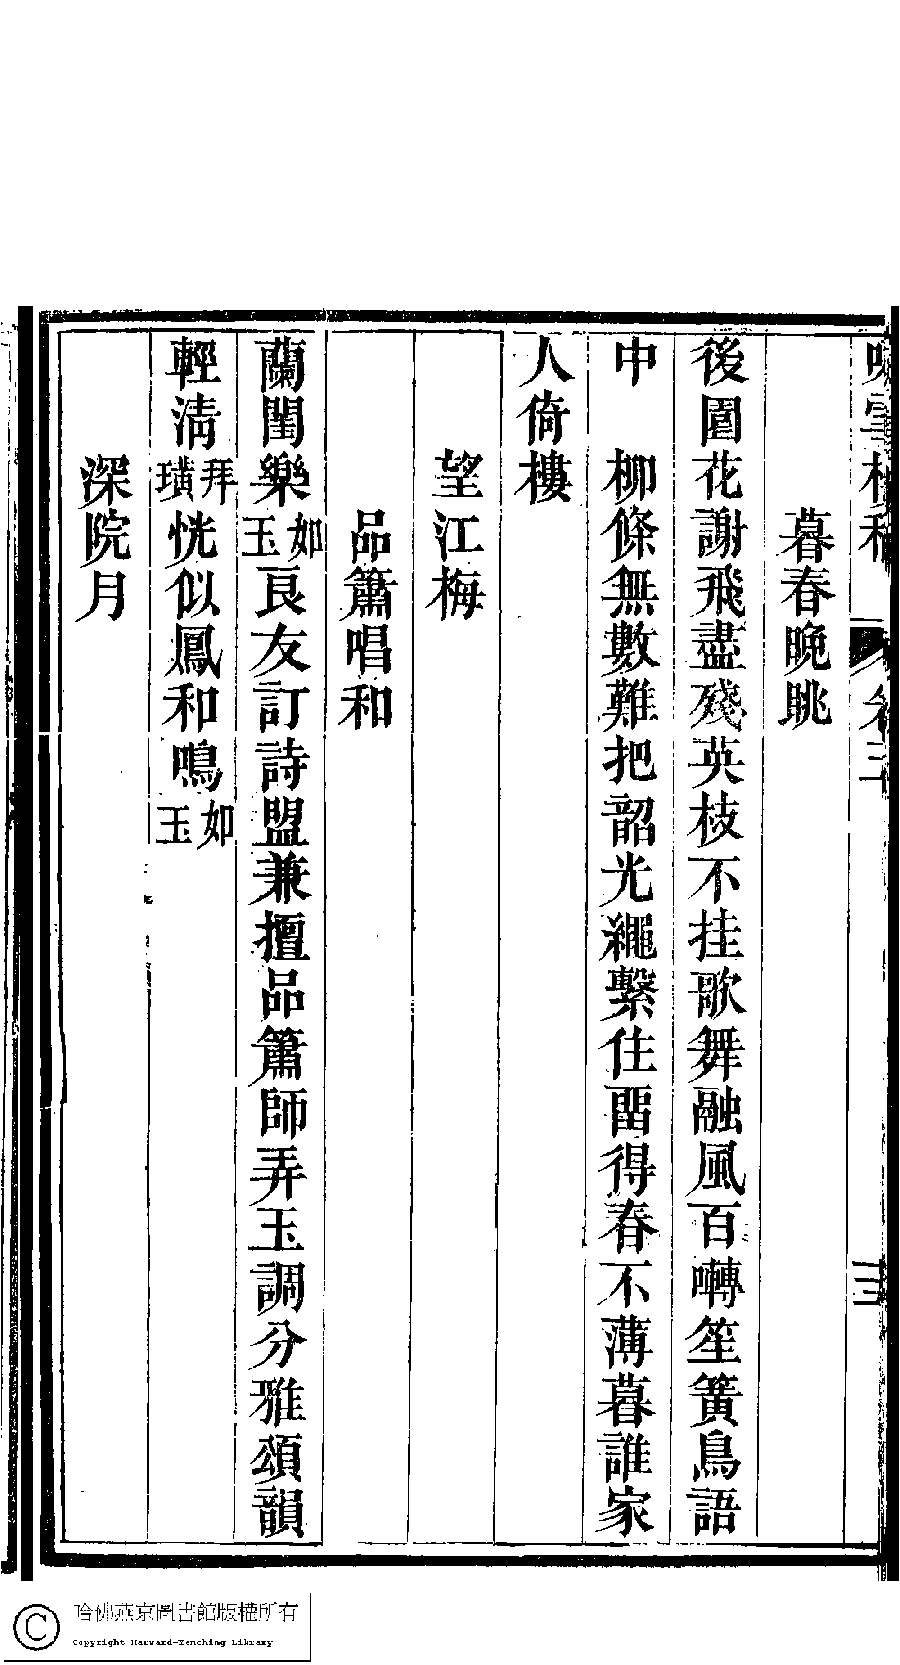 雪樓稿 卷三 三
暮春晚眺
後園花謝飛盡殘英枝不挂歌舞融風百囀笙簧鳥語
中 柳條無數難把韶光繩繫住畱得春不薄暮誰家
人倚樓
望江梅
品簫唱和
蘭閨樂如玉良友訂詩盟兼擅品簫師弄玉調分雅頌韻
輕清拜璜恍似鳳和鳴如玉
深院月
哈佛燕京圖書館版權所有
Copyright Harvard-Yenching Library